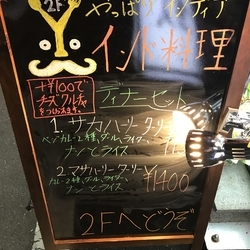 2F
やっぱりインディア
インド料理
+¥100で
チーズクルチャ
ディナーセット
1. サカハーリーターリー
ベジカレー2種、ダール、ライタ、
ナンとライス
2. マサハーリーターリー
カレー2種、ダール、ライタ、
¥1400
ナンとライス
2Fへどうぞ